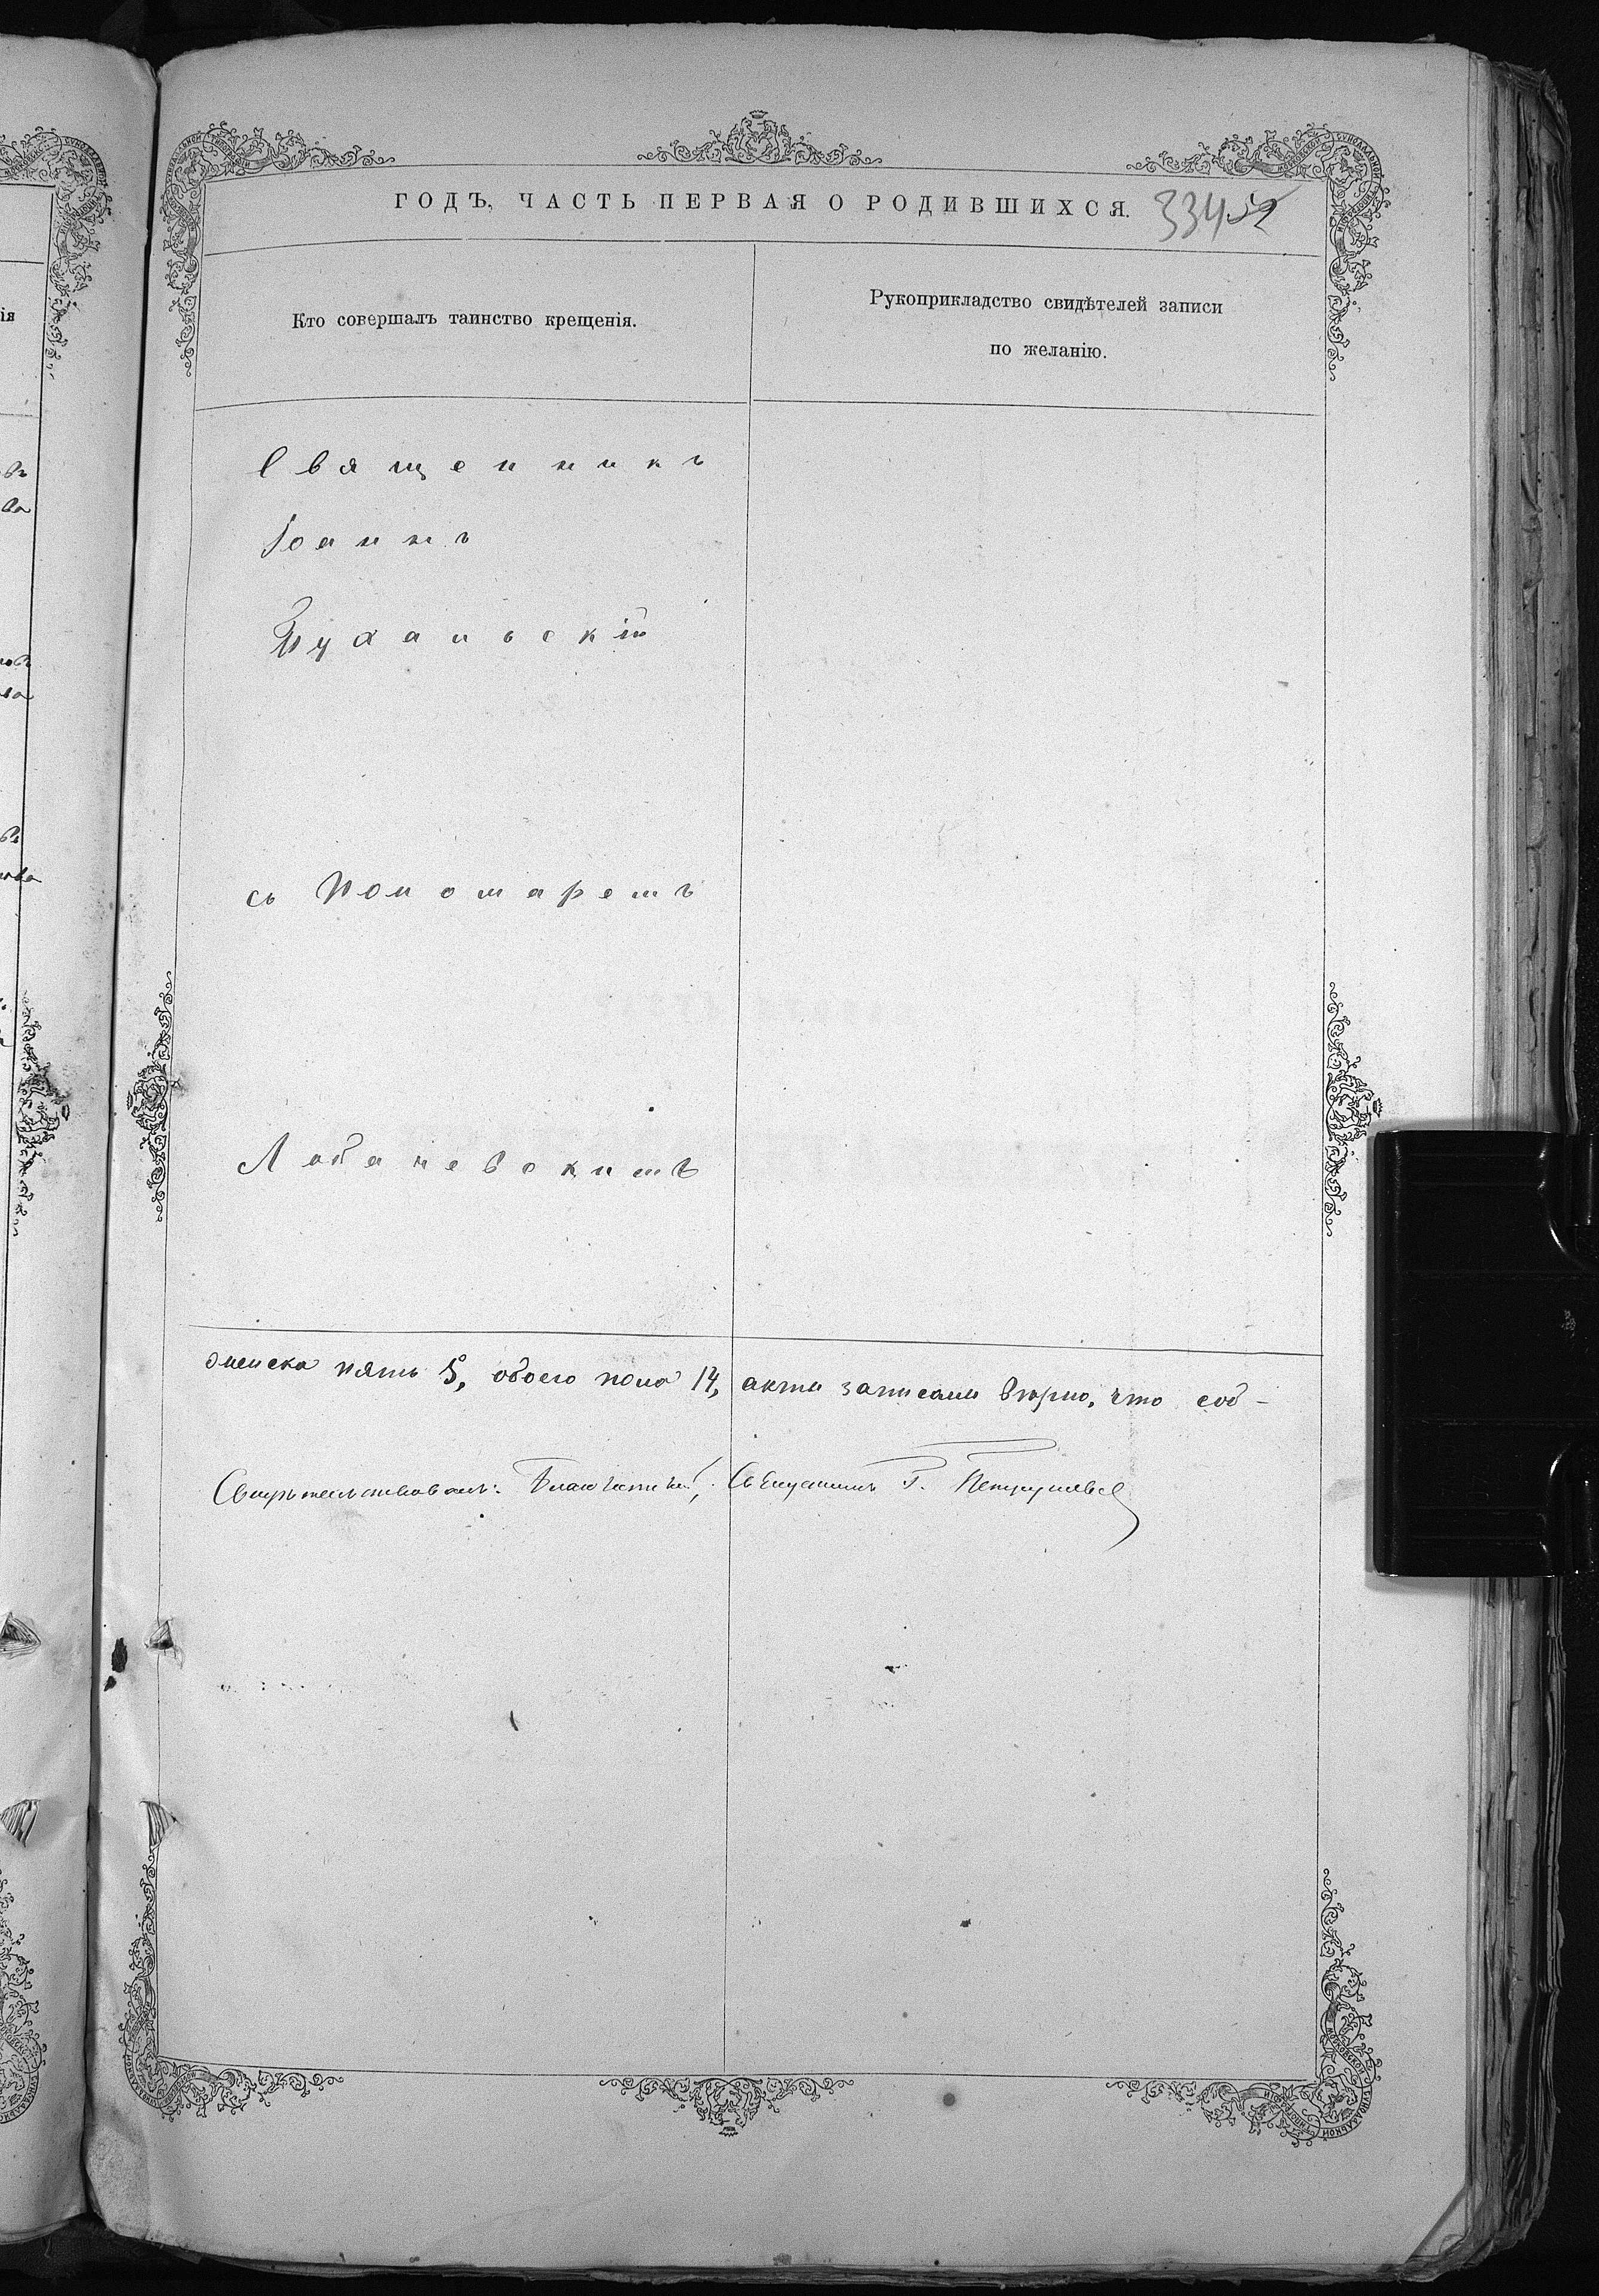 ГОДЪ, ЧАСТЬ ПЕРВАЯ О РОДИВШИХСЯ.
334
Кто совершалъ таинство крещенія.
Рукоприкладство свидѣтелей записи
по желанію.
Священникъ
Іоаннъ
съ Пономаремъ
женска пять 5, обоего пола 14, акты записаны вѣрно, что соб-
Свидѣтельствовалъ: Благочинный, Священникъ Г.